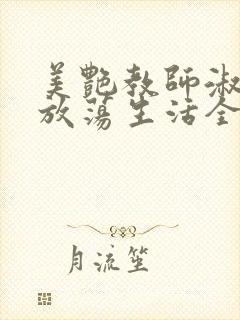 美艷教師淑
放蕩生活全
月流笙